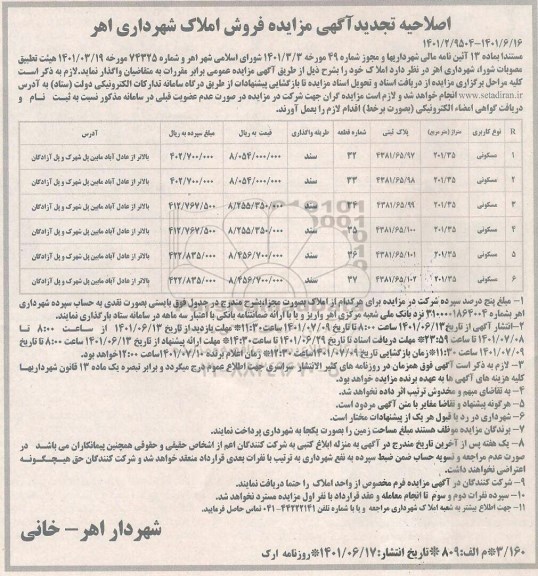 اصلاحیه تجدیدآگهی مزایده فروش املاک شهرداری اهر
۱۴۰۱/۲/۹۵۰۴-۱۴۰۱/۶/۱۶
مستندا بماده ۱۳ آئین نامه مالی شهرداریها و مجوز شماره ۴۹ مورخه ۱۴۰۱/۳/۳ شورای اسلامی شهر اهر و شماره ۷۴۳۲۵ مورخه ۱۴۰۱/۰۳/۱۹ هیئت تطبیق
مصوبات شورا، شهرداری اهر در نظر دارد املاک خود را بشرح ذیل از طریق آگهی مزایده عمومی برابر مقررات به متقاضیان واگذار نماید.لازم به ذکر است
کلیه مراحل برگزاری مزایده از دریافت اسناد و تحویل اسناد مزایده تا بازگشایی پیشنهادات از طریق درگاه سامانه تدارکات الکترونیکی دولت (ستاد) به آدرس
www.setadiran.ir انجام خواهد شد و لازم است مزایده گران جهت شرکت در مزایده در صورت عدم عضویت قبلی در سامانه مذکور نسبت به ثبت نام و
دریافت گواهی امضاء الکترونیکی (بصورت برخط) اقدام لازم را بعمل آورند.
R نوع کاربری متراژ (متر مربع) پلاک ثبتی شماره قطعه طریقه واگذاری قیمت به ریال مبلغ سپرده به ریال آدرس
۱ مسکونی ۲۰۱/۳۵ ۴۳۸۱/۶۵/۹۷ ۳۲ سند ۸/۰۵۴/۰۰۰/۰۰۰ ۴۰۲/۷۰۰/۰۰۰ بالاتر از عادل آباد مابین پل شهرک و پل آزادگان
۲ مسکونی ۲۰۱/۳۵ ۴۳۸۱/۶۵/۹۸ ۳۳ سند ۸/۰۵۴/۰۰۰/۰۰۰ ۴۰۲/۷۰۰/۰۰۰ بالاتر از عادل آباد مابین پل شهرک و پل آزادگان
۳ مسکونی ۲۰۱/۳۵ ۴۳۸۱/۶۵/۹۹ ۳۴ سند ۸/۲۵۵/۳۵۰/۰۰۰ ۴۱۲/۷۶۷/۵۰۰ بالاتر از عادل آباد مابین پل شهرک و پل آزادگان
۴ مسکونی ۲۰۱/۳۵ ۴۳۸۱/۶۵/۱۰۰ ۳۵ سند ۸/۲۵۵/۳۵۰/۰۰۰ ۴۱۲/۷۶۷/۵۰۰ بالاتر از عادل آباد مابین پل شهرک و پل آزادگان
۵ مسکونی ۲۰۱/۳۵ ۴۳۸۱/۶۵/۱۰۱ ۳۶ سند ۸/۴۵۶/۷۰۰/۰۰۰ ۴۲۲/۸۳۵/۰۰۰ بالاتر از عادل آباد مابین پل شهرک و پل آزادگان
۶ مسکونی ۲۰۱/۳۵ ۴۳۸۱/۶۵/۱۰۲ ۳۷ سند ۸/۴۵۶/۷۰۰/۰۰۰ ۴۲۲/۸۳۵/۰۰۰ بالاتر از عادل آباد مابین پل شهرک و پل آزادگان
۱- مبلغ پنج درصد سپرده شرکت در مزایده برای هرکدام از املاک بصورت مجزا بشرح مندرج در جدول فوق بایستی بصورت نقدی به حساب سپرده شهرداری
اهر بشماره ۳۱۰۰۰۰۱۸۶۴۰۰۴ نزد بانک ملی شعبه مرکزی اهر واریز و یا با ارائه ضمانتنامه بانکی با اعتبار سه ماهه در سامانه ستاد بارگذاری نمایند.
۲-انتشار آگهی از تاریخ ۱۴۰۱/۰۶/۱۳ ساعت ۸:۰۰ تا تاریخ ۱۴۰۱/۰۷/۰۹ ساعت ۱۱:۳۰* مهلت بازدید از تاریخ ۱۴۰۱/۰۶/۱۳ از ساعت ۸:۰۰ تا
۱۴۰۱/۰۷/۰۸ تا ساعت ۲۳:۵۹* مهلت دریافت اسناد تا تاریخ ۱۴۰۱/۰۶/۲۹ تا ساعت ۱۴:۳۰* مهلت ارائه پیشنهاد از تاریخ ۱۴۰۱/۰۶/۱۳ تا تاریخ
۱۴۰۱/۰۷/۰۹ ساعت ۱۱:۳۰*زمان بازگشایی تاریخ ۱۴۰۱/۰۷/۰۹ ساعت ۱۲:۳۰* زمان اعلام برنده ۱۴۰۱/۰۷/۱۰ ساعت ۱۲:۰۰خواهد بود.
۳- لازم به ذکر است آگهی فوق همزمان در روزنامه های کثیر الانتشار سراسری جهت اطلاع عموم درج میگردد و برابر تبصره یک ماده ۱۳ قانون شهرداریها
کلیه هزینه های آگهی ها به عهده برنده مزایده خواهد بود.
۴- به تقاضای مبهم و مخدوش ترتیب اثر داده نخواهد شد.
۵- هرگونه پیشنهاد و تقاضا مغایر با متن آگهی مردود است.
۶- شهرداری در رد یا قبول هر یک از پیشنهادات مختار است.
۷- برندگان مزایده موظف هستند مبلغ مساحت زمین را بصورت یکجا به شهرداری پرداخت نمایند.
۸- یک هفته پس از آخرین تاریخ مندرج در آگهی به منزله ابلاغ کتبی به شرکت کنندگان اعم از اشخاص حقیقی و حقوقی همچنین پیمانکاران می باشد در
صورت عدم مراجعه و تسویه حساب ضمن ضبط سپرده به نفع شهرداری به ترتیب با نفرات بعدی قرارداد منعقد خواهد شد و شرکت کنندگان حق هیچگونه
اعتراضی نخواهند داشت.
۹- شرکت کنندگان در آگهی مزایده فرم مخصوص از واحد املاک را حتما دریافت نمایند.
۱۰- سپرده نفرات دوم و سوم تا انجام معامله و عقد قرارداد با نفر اول مزایده مسترد نخواهد شد.
۱۱- جهت اطلاع بیشتر به شعبه املاک شهرداری مراجعه و یا با شماره تلفن ۴۴۲۲۲۱۴۱-۰۴۱ تماس حاصل فرمایید.
شهردار اهر – خانی
۳/۱۶۰*م الف:۸۰۹ *تاریخ انتشار:۱۴۰۱/۰۶/۱۷*روزنامه ارک